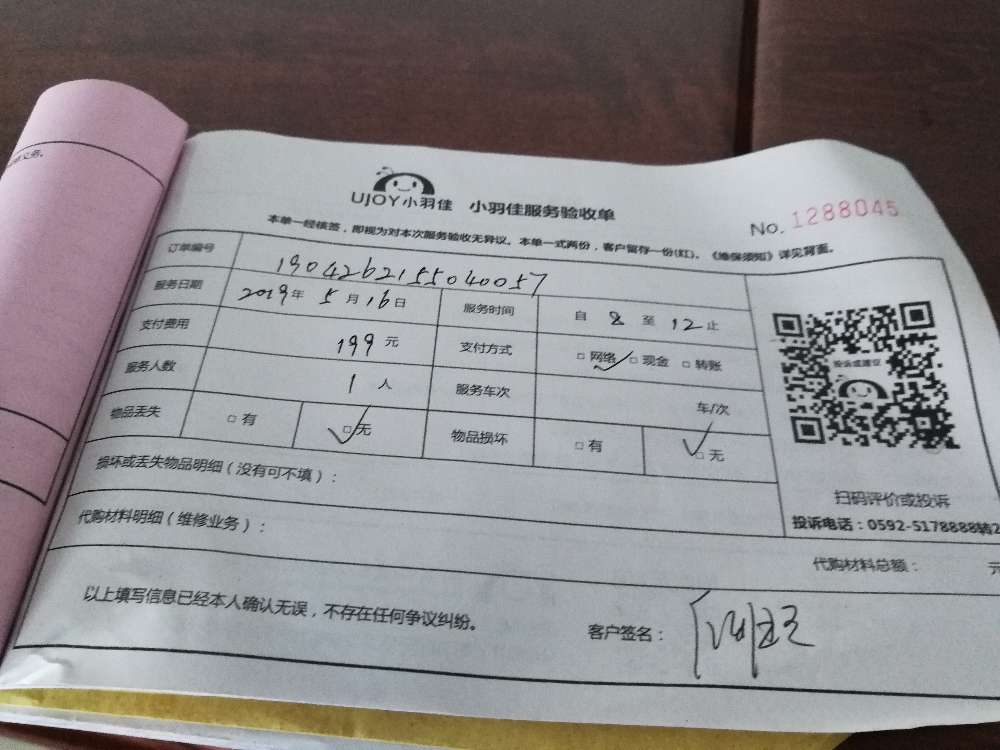 UJOY小羽佳 小羽佳服务验收单
No. 1288045
本单一经核签，即视为对本次服务验收无异议。本单一式两份，客户留存一份(红)。《维保须知》详见背面。
订单编号 1904262155040057
服务日期 2019年 5月16日 服务时间 自 8 至 12 止
支付费用 199元 支付方式 □网络✓ □现金 □转账
服务人数 1人 服务车次 车/次
物品丢失 □有 ☑无 物品损坏 □有 ☑无
投诉或建议
扫码评价或投诉
投诉电话：0592-5178888转2
损坏或丢失物品明细（没有可不填）：
代购材料明细（维修业务）：
代购材料总额： 元
以上填写信息已经本人确认无误，不存在任何争议纠纷。
客户签名：